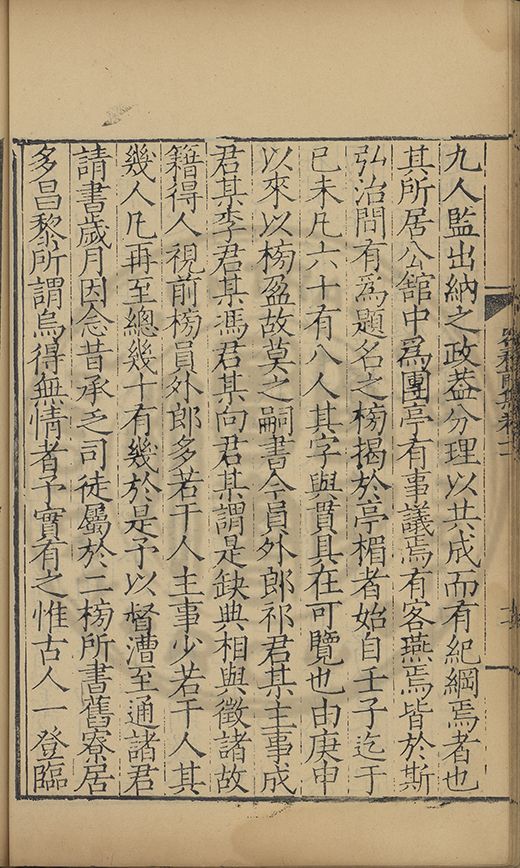 九人監出納之政葢分理以共成而有紀綱焉者也
其所居公舘中爲團亭有事議焉有客燕焉皆於斯
弘治間有爲題名之榜揭於亭楣者始自壬子迄于
已未凡六十有八人其字與貫具在可覽也由庚申
以來以榜盈故莫之嗣書今員外郎祁君某主事成
君某李君某馮君某向君某謂是缺典相與徵諸故
籍得人視前榜員外郎多若干人主事少若干人其
幾人凡再至總幾十有幾於是予以督漕至通諸君
請書歲月因念昔承乏司徒屬於二榜所書舊寮居
多昌黎所謂烏得無情者予實有之惟古人一登臨